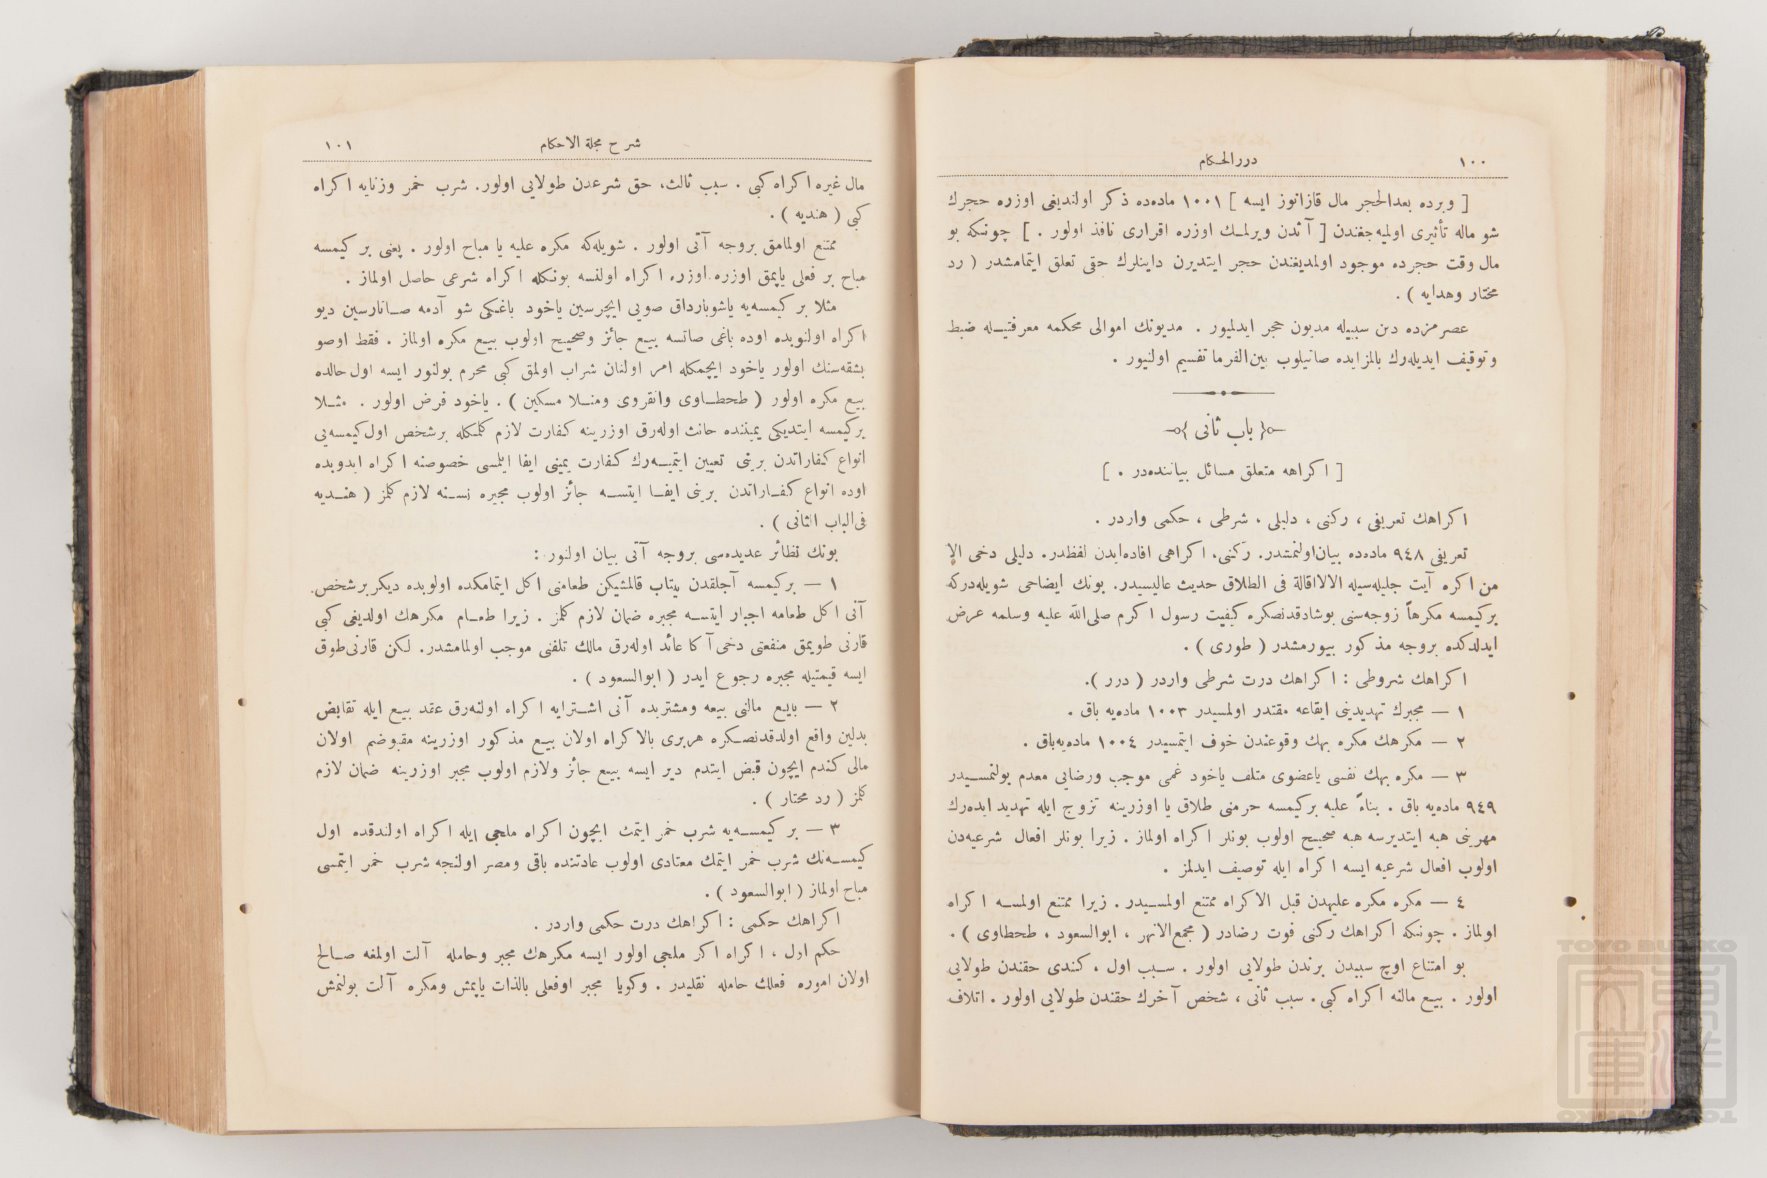 ١٠٠
دررالحكام
[ وبرده بعدالحجر مال قازانوز ايسه ] ١٠٠١ ماده‌ده ذكر اولنديغى اوزره حجرك
شو ماله تأثيرى اوليه‌جغندن [ آ ثدن ويرلمك اوزره اقرارى نافذ اولور . ] چونكه بو
مال وقت حجرده موجود اولمديغندن حجر ايتديرن داينلرك حقى تعلق ايتمامشدر ( رد
مختار وهدايه ) .
عصرمزده دين سببيله مديون حجر ايدلميور . مديونك اموالى محكمه معرفتيله ضبط
وتوقيف ايديله‌رك بالمزايده صاتيلوب بين‌الغرما تقسيم اولنيور .
باب ثانى
[ اكراهه متعلق مسائل بياننده‌در . ]
اكراهك تعريفى ، ركنى ، دليلى ، شرطى ، حكمى واردر .
تعريفى ٩٤٨ ماده‌ده بيان‌اولنمشدر. ركنى، اكراهى افاده‌ايدن لفظدر. دليلى دخى الا
من اكره آيت جليله‌سيله الالااقالة فى الطلاق حديث عاليسيدر. بونك ايضاحى شويله‌دركه
بركيمسه مكرهاً زوجه‌سنى بوشادقدنصكره كيفيت رسول اكرم صلى‌الله عليه وسلمه عرض
ايدلدكده بروجه مذكور بيورمشدر ( طورى ) .
اكراهك شروطى : اكراهك درت شرطى واردر ( درر ).
١ — مجبرك تهديدينى ايقاعه مقتدر اولمسيدر ١٠٠٣ ماده‌يه باق .
٢ — مكرهك مكره بهك وقوعندن خوف ايتمسيدر ١٠٠٤ ماده‌يه‌باق .
٣ — مكره بهك نفسى ياعضوى متلف ياخود غمى موجب ورضايى معدم بولنمسيدر
٩٤٩ ماده‌يه باق . بناءً عليه بركيمسه حرمنى طلاق يا اوزرينه تزوج ايله تهديد ايده‌رك
مهرينى هبه ايتديرسه هبه صحيح اولوب بونلر اكراه اولماز . زيرا بونلر افعال شرعيه‌دن
اولوب افعال شرعيه ايسه اكراه ايله توصيف ايدلمز .
٤ — مكره مكره عليهدن قبل الاكراه ممتنع اولمسيدر . زيرا ممتنع اولمسه اكراه
اولماز . چونكه اكراهك ركنى فوت رضادر ( مجمع‌الانهر ، ابوالسعود ، طحطاوى ) .
بو امتناع اوچ سببدن برندن طولايى اولور . سبب اول ، كندى حقندن طولايى
اولور . بيع مالنه اكراه كبى . سبب ثانى ، شخص آخرك حقندن طولايى اولور . اتلاف
شرح مجلة الاحكام
١٠١
مال غيره اكراه كبى . سبب ثالث، حق شرعدن طولايى اولور. شرب خمر وزنايه اكراه
كبى ( هنديه ) .
ممتنع اولمامق بروجه آتى اولور . شويله‌كه مكره عليه يا مباح اولور . يعنى بر كيمسه
مباح بر فعلى ياپمق اوزره اوزره اكراه اولنسه بونكله اكراه شرعى حاصل اولماز .
مثلا بر كيمسه‌يه ياشوبارداق صويى ايچرسين ياخود باغكى شو آدمه صاتارسين ديو
اكراه اولنوبده اوده باغى صاتسه بيع جائز وصحيح اولوب بيع مكره اولماز . فقط اوصو
بشقه‌سنك اولور ياخود ايچمكله امر اولنان شراب اولمق كبى محرم بولنور ايسه اول حالده
بيع مكره اولور ( طحطاوى وانقروى ومنلا مسكين ) . ياخود فرض اولور . مثلا
بركيمسه ايتديكى يمينده حانث اوله‌رق اوزرينه كفارت لازم كلمكله برشخص اول كيمسه‌يى
انواع كفاراتدن برينى تعيين ايتميه‌رك كفارت يمينى ايفا ايلمسى خصوصنه اكراه ايدوبده
اوده انواع كفاراتدن برينى ايفا ايتسه جائز اولوب مجبره نسنه لازم كلمز ( هنديه
فى‌الباب الثانى ) .
بونك نظائر عديده‌سى بروجه آتى بيان اولنور :
١ — بركيمسه آجلقدن بيتاب قالمشيكن طعامنى اكل ايتمامكده اولوبده ديكربرشخص
آنى اكل طعامه اجبار ايتسه مجبره ضمان لازم كلمز . زيرا طعام مكرهك اولديغى كبى
قارنى طويمق منفعتى دخى آكا عائد اوله‌رق مالك تلفنى موجب اولمامشدر. لكن قارنى‌طوق
ايسه قيمتيله مجبره رجوع ايدر ( ابوالسعود ) .
٢ — بايع مالنى بيعه ومشتريده آنى اشترايه اكراه اولنه‌رق عقد بيع ايله تقابض
بدلين واقع اولدقدنصكره هربرى بالاكراه اولان بيع مذكور اوزرينه مقبوضم اولان
مالى كندم ايچون قبض ايتدم دير ايسه بيع جائز ولازم اولوب مجبر اوزرينه ضمان لازم
كلمز ( رد محتار ) .
٣ — بر كيمسه‌يه شرب خمر ايتمك ايچون اكراه ملجى ايله اكراه اولندقده اول
كيمسه‌نك شرب خمر ايتمك معتادى اولوب عادتنده باقى ومصر اولنجه شرب خمر ايتمسى
مباح اولماز ( ابوالسعود ) .
اكراهك حكمى : اكراهك درت حكمى واردر .
حكم اول ، اكراه اكر ملجى اولور ايسه مكرهك مجبر وحامله آلت اولمغه صالح
اولان اموره فعلك حامله نقليدر . وكويا مجبر اوفعلى بالذات ياپمش ومكره آلت بولنمش
TOYO BUNKO